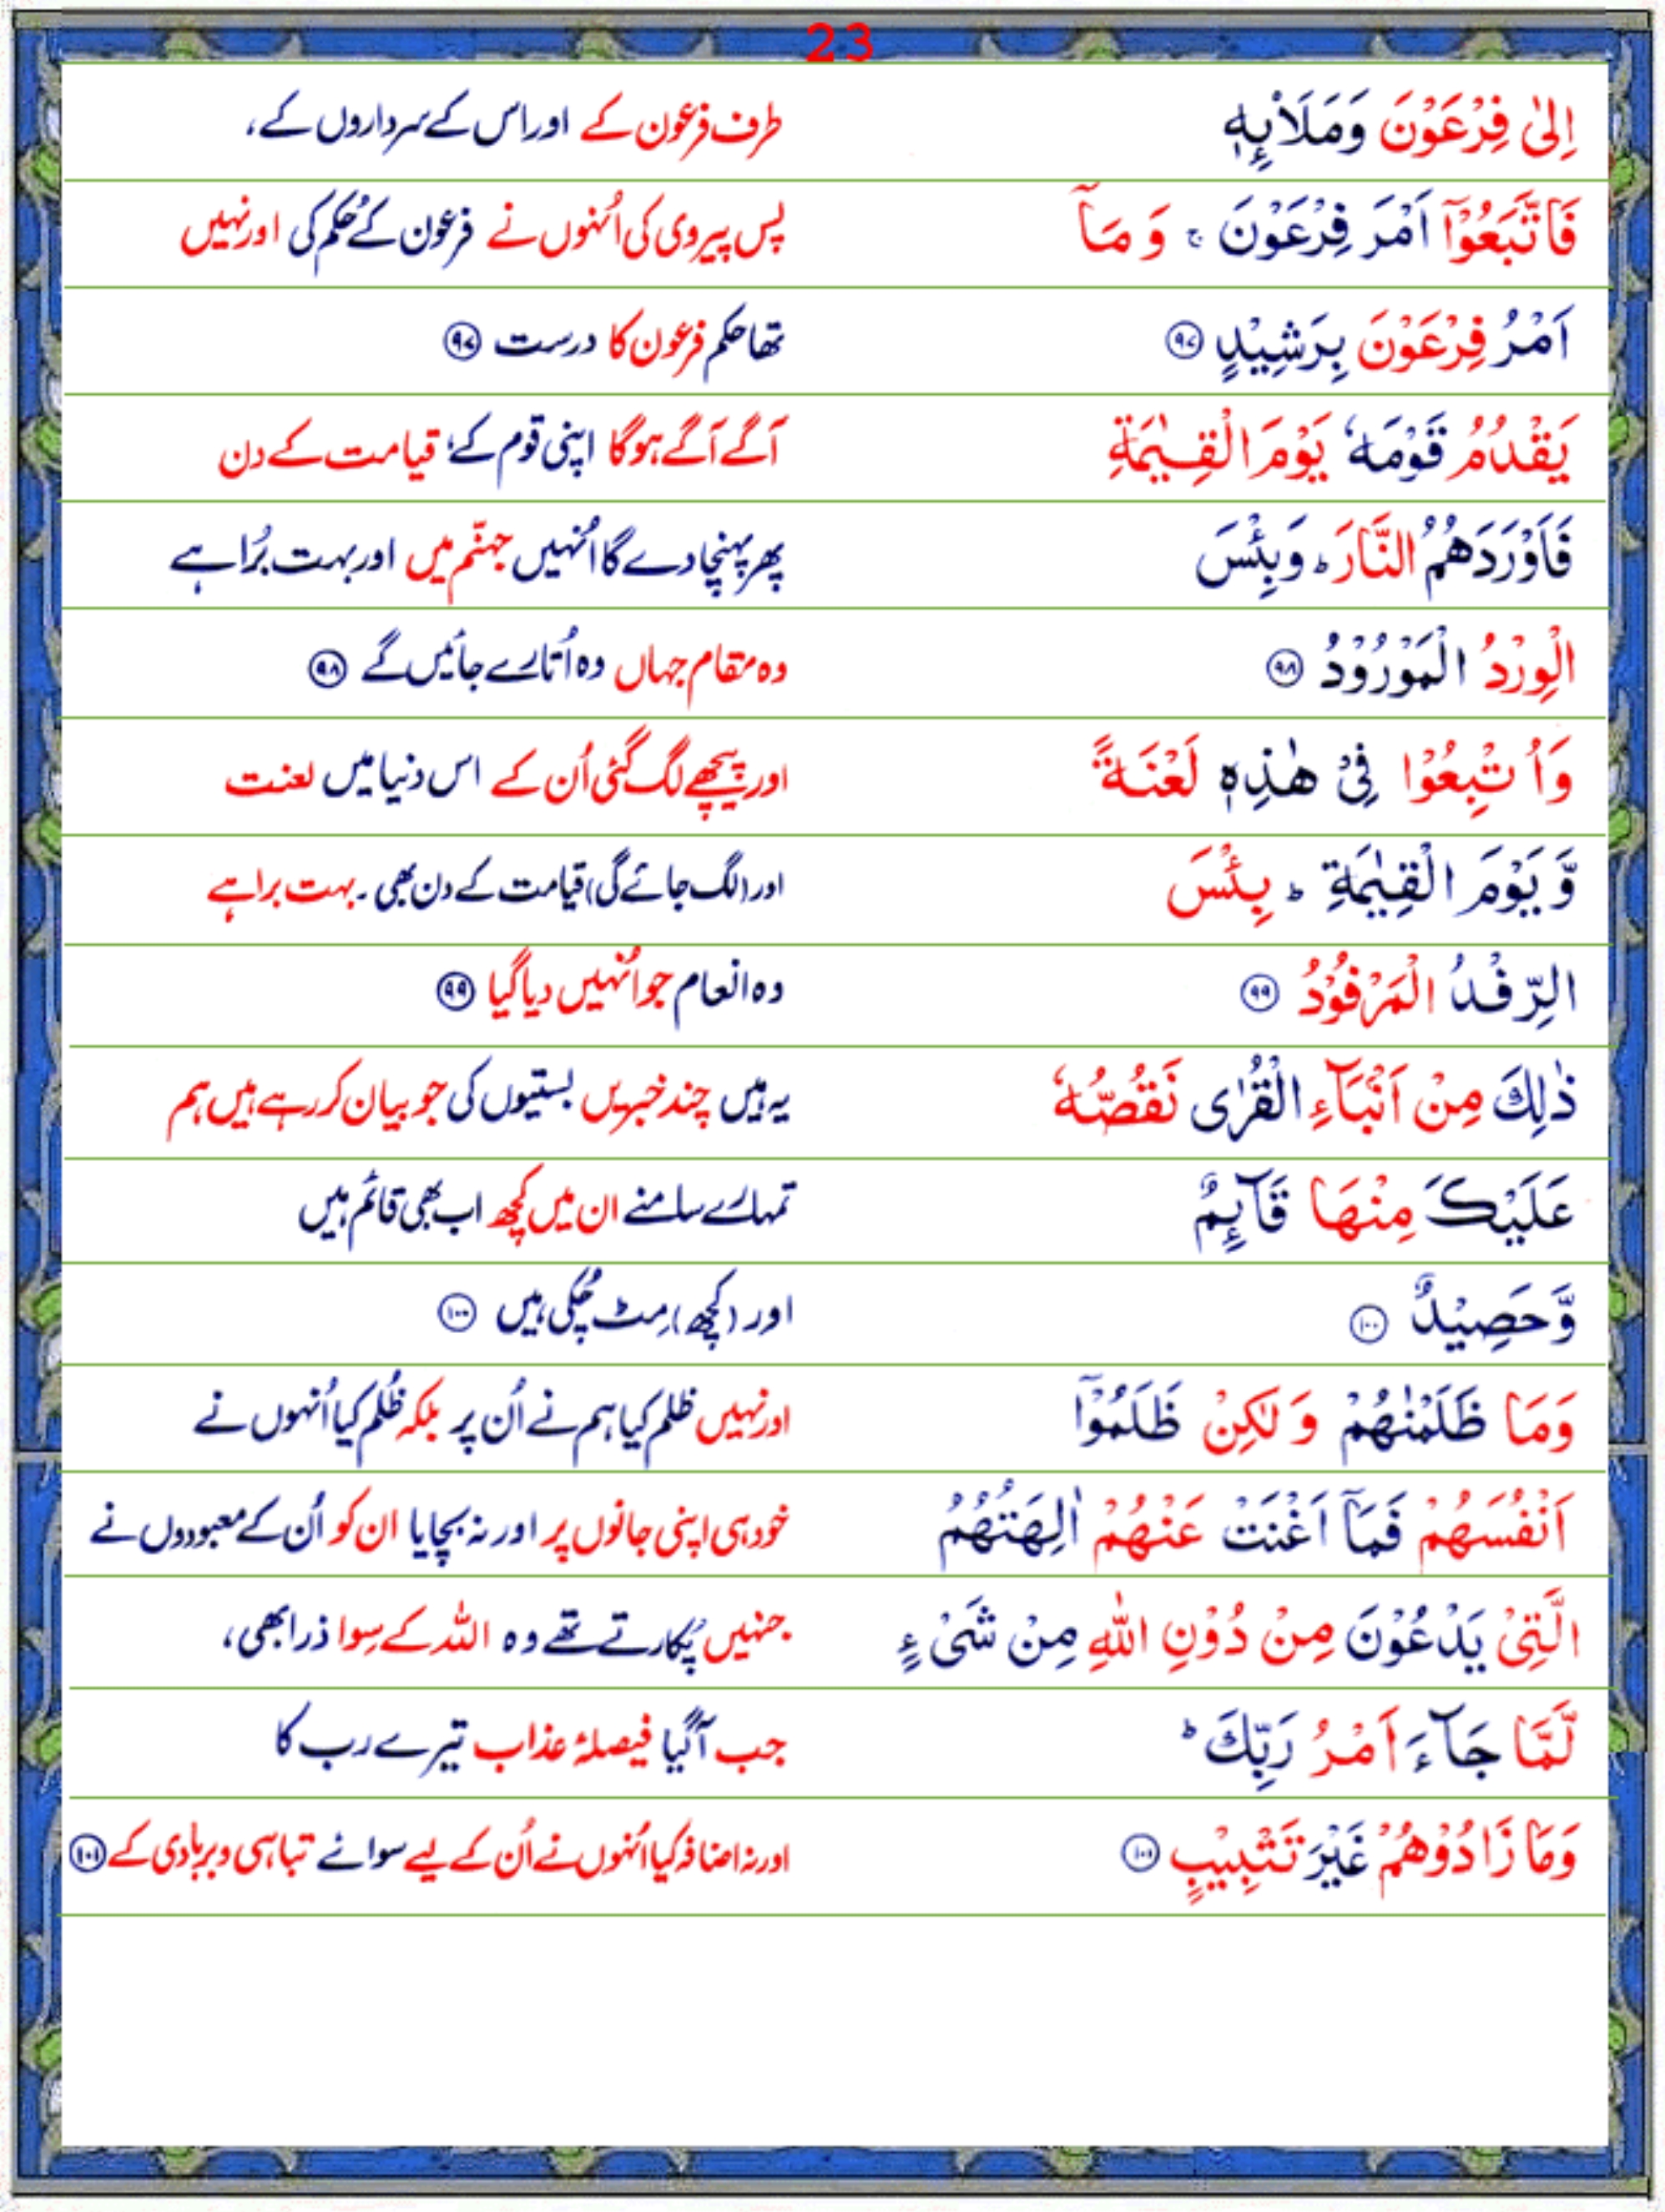 23
اِلٰى فِرْعَوْنَ وَمَلَا۟ئِهٖ طرف فرعون کے اور اس کے سرداروں کے،
فَاتَّبَعُوْۤا اَمْرَ فِرْعَوْنَ ۚ وَ مَاۤ پس پیروی کی اُنہوں نے فرعون کے حُکم کی اور نہیں
اَمْرُ فِرْعَوْنَ بِرَشِيْدٍ ۹۷ تھا حکم فرعون کا درست ۹۷
يَقْدُمُ قَوْمَهٗ يَوْمَ الْقِيٰمَةِ آگے آگے ہوگا اپنی قوم کے، قیامت کے دن
فَاَوْرَدَهُمُ النَّارَ ؕ وَبِئْسَ پھر پہنچا دے گا اُنہیں جہنّم میں اور بہت بُرا ہے
الْوِرْدُ الْمَوْرُوْدُ ۹۸ وہ مقام جہاں وہ اُتارے جائیں گے ۹۸
وَاُتْبِعُوْا فِيْ هٰذِهٖ لَعْنَةً اور پیچھے لگ گئی اُن کے اس دنیا میں لعنت
وَّيَوْمَ الْقِيٰمَةِ ؕ بِئْسَ اور (لگ جائے گی) قیامت کے دن بھی۔ بہت برا ہے
الرِّفْدُ الْمَرْفُوْدُ ۹۹ وہ انعام جو اُنہیں دیا گیا ۹۹
ذٰلِكَ مِنْ اَنْۢبَآءِ الْقُرٰى نَقُصُّهٗ یہ ہیں چند خبریں بستیوں کی جو بیان کر رہے ہیں ہم
عَلَيْكَ مِنْهَا قَآئِمٌ تمہارے سامنے ان میں کچھ اب بھی قائم ہیں
وَّحَصِيْدٌ ۱۰۰ اور (کچھ) مِٹ چُکی ہیں ۱۰۰
وَمَا ظَلَمْنٰهُمْ وَلٰكِنْ ظَلَمُوْۤا اور نہیں ظلم کیا ہم نے اُن پر بلکہ ظُلم کیا اُنہوں نے
اَنْفُسَهُمْ فَمَاۤ اَغْنَتْ عَنْهُمْ اٰلِهَتُهُمُ خود ہی اپنی جانوں پر اور نہ بچایا ان کو اُن کے معبودوں نے
الَّتِيْ يَدْعُوْنَ مِنْ دُوْنِ اللّٰهِ مِنْ شَيْءٍ جنہیں پُکارتے تھے وہ اللہ کے سِوا ذرا بھی،
لَّمَّا جَآءَ اَمْرُ رَبِّكَ ؕ جب آگیا فیصلۂ عذاب تیرے رب کا
وَمَا زَادُوْهُمْ غَيْرَ تَتْبِيْبٍ ۱۰۱ اور نہ اضافہ کیا اُنہوں نے اُن کے لیے سوائے تباہی و بربادی کے ۱۰۱